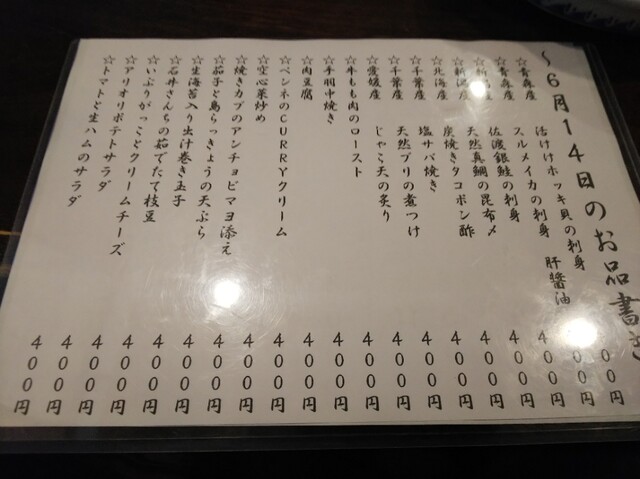 〜6月14日のお品書き
☆青森産 活けホッキ貝の刺身 00円
☆青森産 スルメイカの刺身 肝醤油 00円
☆新潟産 佐渡銀鮭の刺身 400円
☆新潟産 天然真鯛の昆布〆 400円
☆北海産 炭焼きタコポン酢 400円
☆千葉産 塩サバ焼き 400円
☆千葉産 天然ブリの煮つけ 400円
☆愛媛産 じゃこ天の炙り 400円
☆牛もも肉のロースト 400円
☆手羽中焼き 400円
☆肉豆腐 400円
☆ペンネのCURRYクリーム 400円
☆空心菜炒め 400円
☆焼きカブのアンチョビマヨ添え 400円
☆茄子と島らっきょうの天ぷら 400円
☆生海苔入り出汁巻き玉子 400円
☆石井さんちの茹でたて枝豆 400円
☆いぶりがっことクリームチーズ 400円
☆アリオリポテトサラダ 400円
☆トマトと生ハムのサラダ 400円